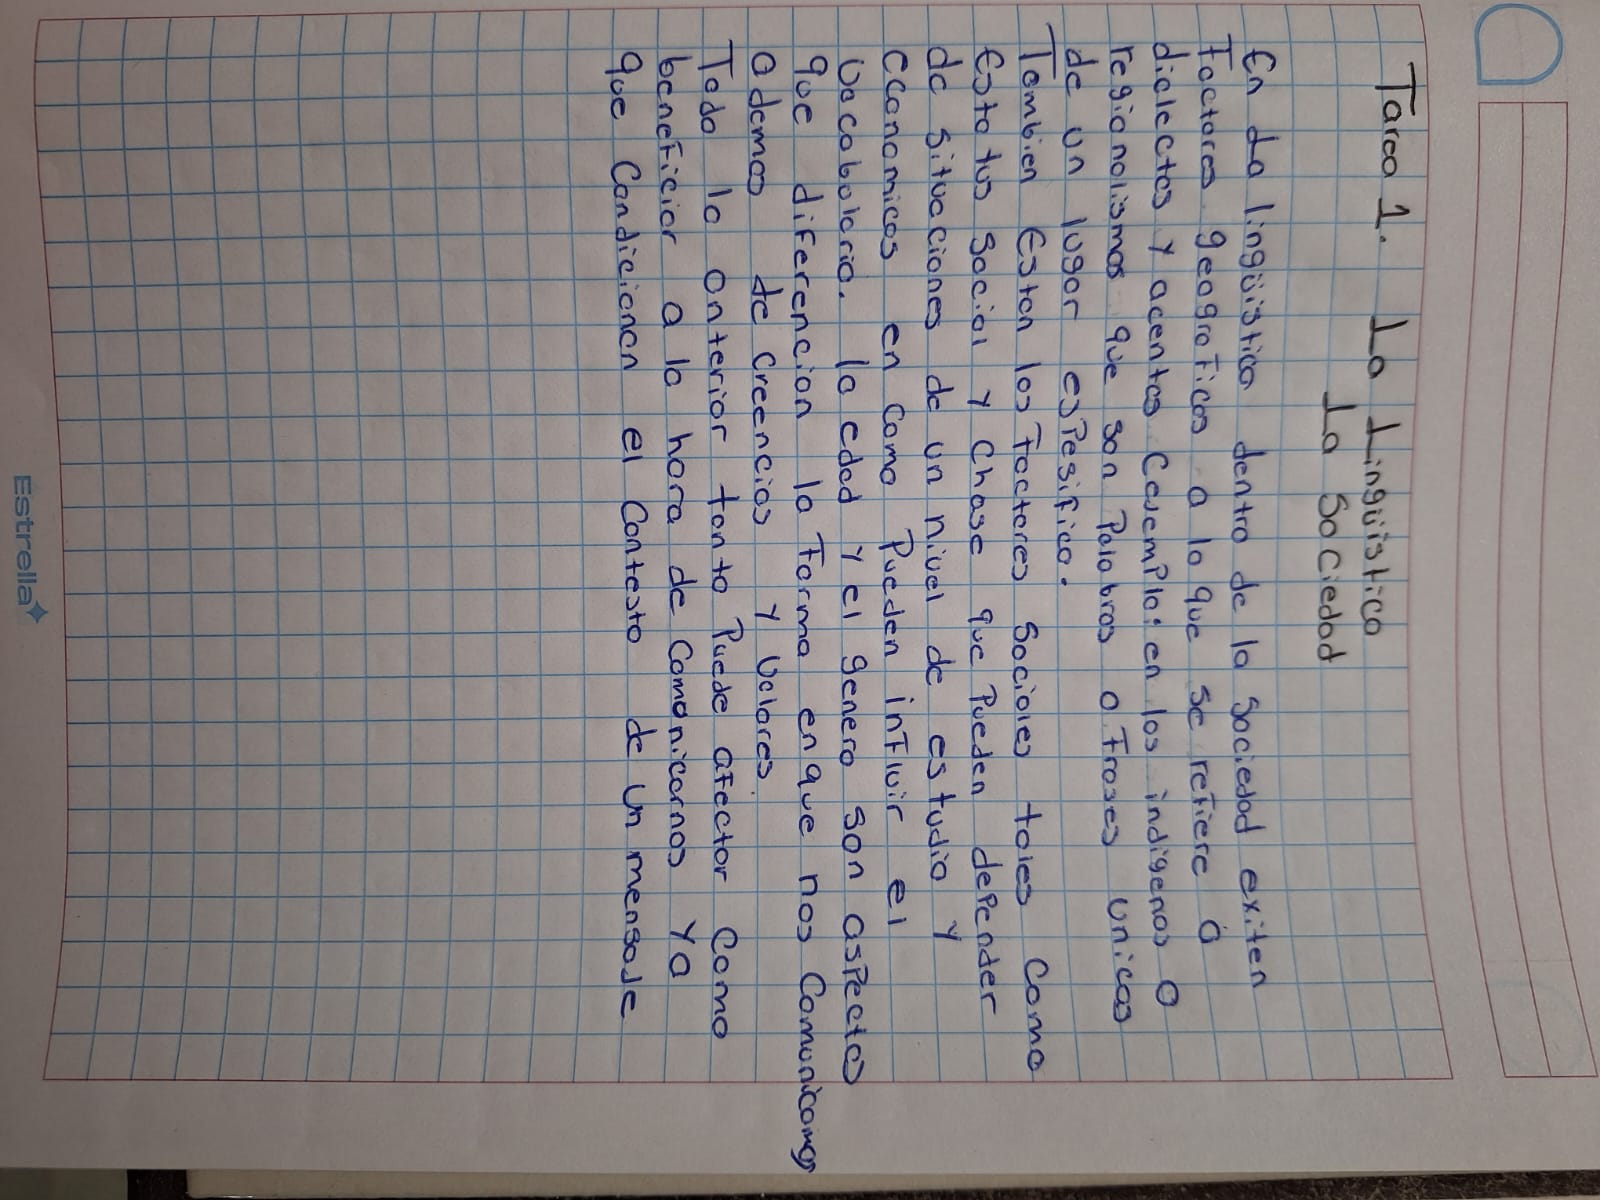 Tarea 1. La Lingüistica
La Sociedad
En La lingüistica dentro de la Sociedad exiten
Factores geograficos a lo que se refiere a
dialectos y acentos Cejemplo: en los indigenas o
regionalismos que son Palabras o Frases unicas
de un lugar esPesifico.
Tambien Estan los Factores Sociales tales Como
Estatus Social y Chase que Pueden dePender
de situaciones de un nivel de estudio y
economicos en Como Pueden inFluir el
Vacabulario. la edad y el genero son asPectos
que diferencian la Forma en que nos Comunicamos
ademas de Creencias y Valores.
Todo lo anterior tanto Puede aFectar Como
beneFiciar a la hora de Comunicarnos Ya
que Condicionan el Contesto de un mensaje
Estrella